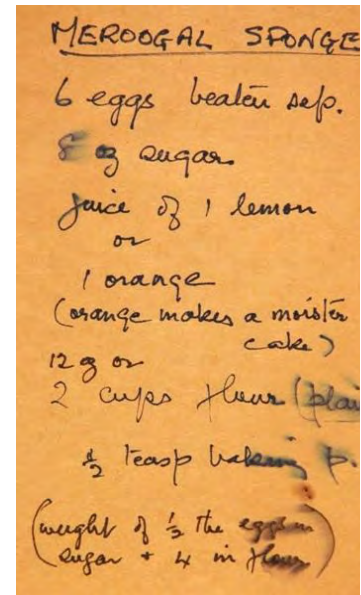 MEROOGAL SPONGE
6 eggs beaten sep.
8 oz sugar
Juice of 1 lemon
or
1 orange
(orange makes a moister
cake)
12 oz or
2 cups flour (plai
½ teasp baking p.
(weight of ½ the eggs in
sugar + 4 in flour)